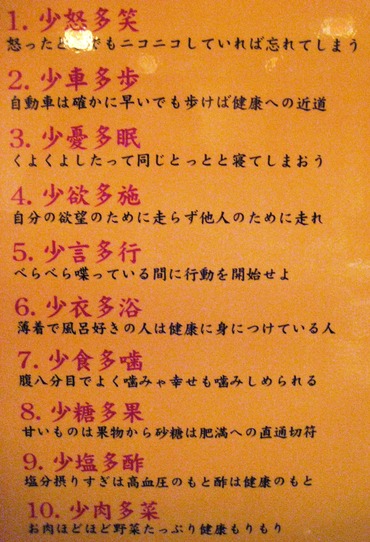 1. 少怒多笑
怒ったと でもニコニコしていれば忘れてしまう
2. 少車多歩
自動車は確かに早いでも歩けば健康への近道
3. 少憂多眠
くよくよしたって同じとっとと寝てしまおう
4. 少欲多施
自分の欲望のために走らず他人のために走れ
5. 少言多行
べらべら喋っている間に行動を開始せよ
6. 少衣多浴
薄着で風呂好きの人は健康に身につけている人
7. 少食多噛
腹八分目でよく噛みゃ幸せも噛みしめられる
8. 少糖多果
甘いものは果物から砂糖は肥満への直通切符
9. 少塩多酢
塩分摂りすぎは高血圧のもと酢は健康のもと
10. 少肉多菜
お肉ほどほど野菜たっぷり健康もりもり